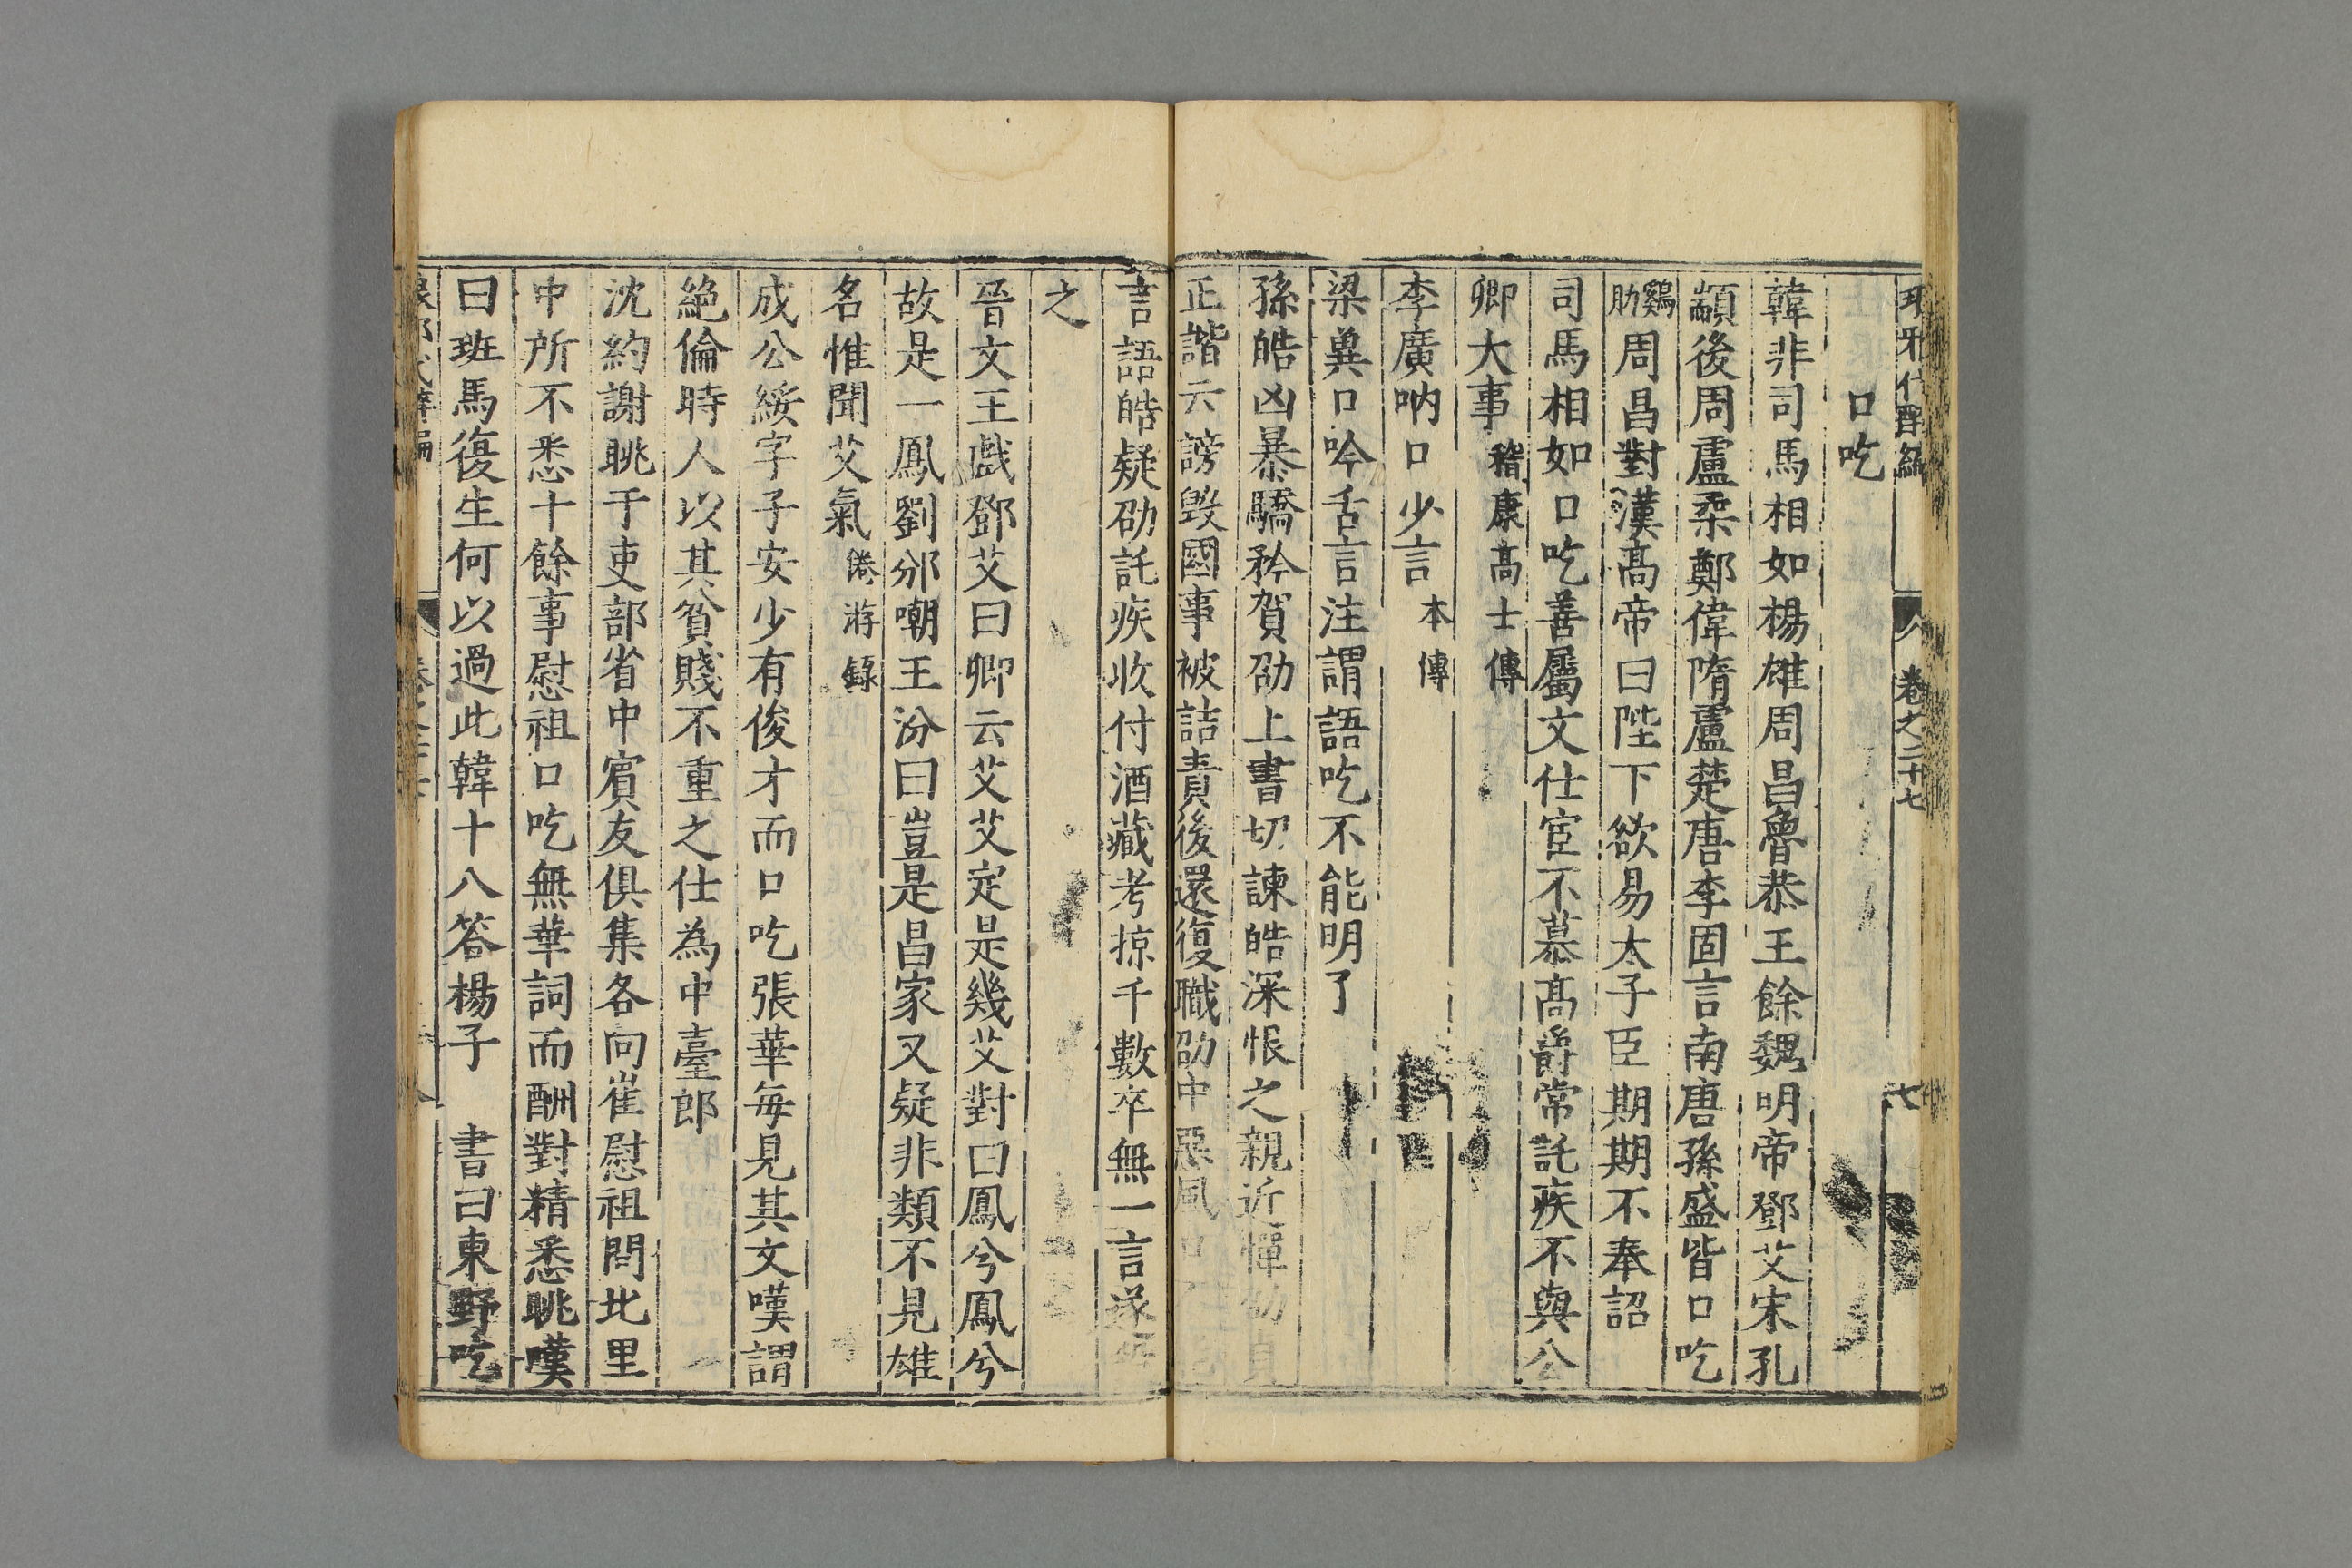 瑯牙代醉編 卷之二十七 七
口吃
韓非司馬相如楊雄周昌魯恭王餘魏明帝鄧艾宋孔
顗後周盧柔鄭偉隋盧楚唐李固言南唐孫盛皆口吃
鷄肋周昌對漢高帝曰陛下欲易太子臣期期不奉詔
司馬相如口吃善屬文仕宦不慕高爵常託疾不與公
卿大事 稽康高士傳
李廣吶口少言 本傳
梁冀口吟舌言注謂語吃不能明了
孫皓凶暴驕矜賀劭上書切諫皓深恨之親近憚劭見
正譖云謗毀國事被詰責後還復職劭中惡風口
言語皓疑劭託疾收付酒藏考掠千數卒無一言遂
之
晉文王戲鄧艾曰卿云艾艾定是幾艾對曰鳳兮鳳兮
故是一鳳劉邠嘲王汾曰豈是昌家又疑非類不見雄
名惟聞艾氣 倦游錄
成公綏字子安少有俊才而口吃張華每見其文嘆謂
絕倫時人以其貧賤不重之仕為中臺郎
沈約謝眺于吏部省中賓友俱集各向崔慰祖問北里
中所不悉十餘事慰祖口吃無華詞而酬對精悉眺嘆
曰班馬復生何以過此韓十八答楊子 書曰東野吃